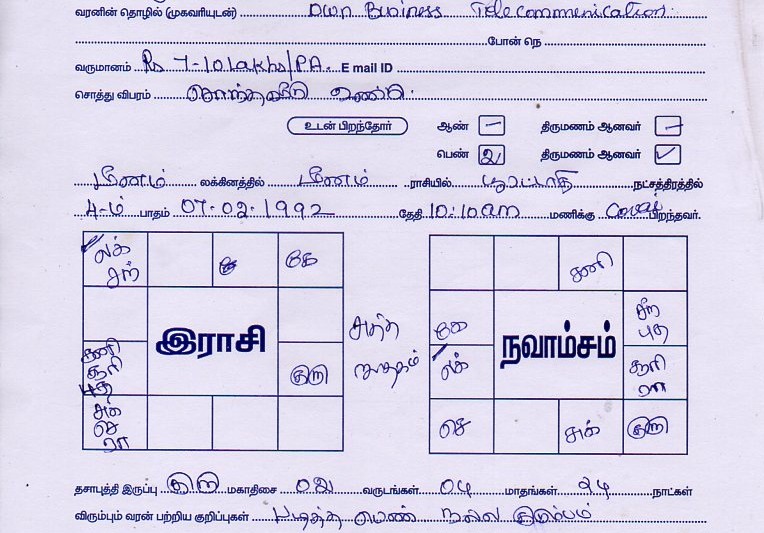 வரனின் தொழில் (முகவரியுடன்) : Own Business Telecommunication.
போன் நெ
வருமானம் Rs 7-10 Lakhs/PA. E mail ID
சொத்து விபரம் சொந்தவீடு உண்டு.
உடன் பிறந்தோர் ஆண் – திருமணம் ஆனவர் –
பெண் 2 திருமணம் ஆனவர் ✓
மீனம் லக்கினத்தில் மீனம் ராசியில் பூரட்டாதி நட்சத்திரத்தில்
4-ம் பாதம் 07.02.1992 தேதி 10:10am மணிக்கு Covai பிறந்தவர்.
லக் சந் கே சனி
இராசி நவாம்சம்
சுத்த ஜாதகம்
கே சந் புத
சனி சூரி புத குரு லக் சூரி ரா
சுக் செ ரா செ சுக் குரு
தசாபுத்தி இருப்பு குரு மகாதிசை 02 வருடங்கள் 04 மாதங்கள் 24 நாட்கள்
விரும்பும் வரன் பற்றிய குறிப்புகள் படித்த பெண் நல்ல குடும்பம்